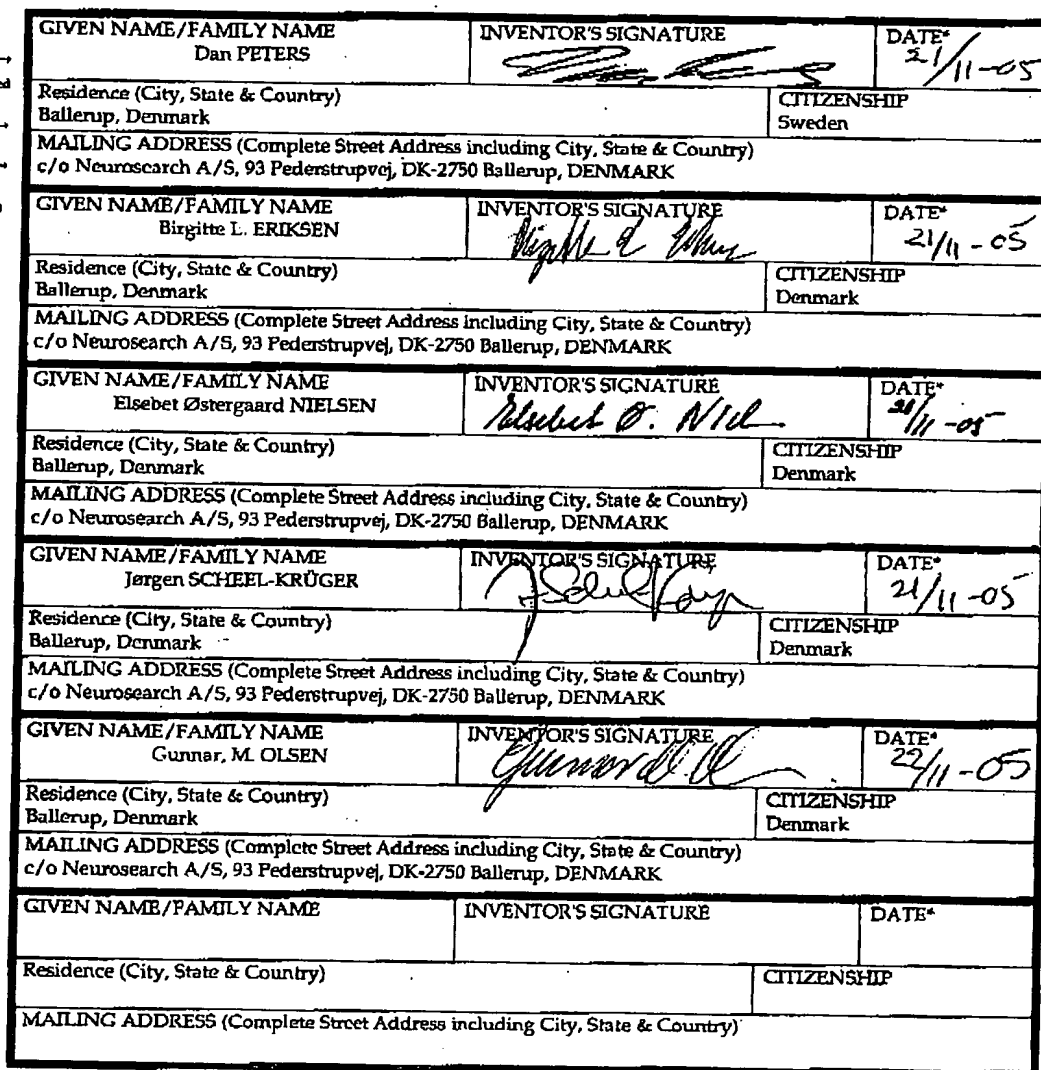 GIVEN NAME/FAMILY NAME INVENTOR'S SIGNATURE DATE*
Dan PETERS 21/11-05
Residence (City, State & Country) CITIZENSHIP
Ballerup, Denmark Sweden
MAILING ADDRESS (Complete Street Address including City, State & Country)
c/o Neurosearch A/S, 93 Pederstrupvej, DK-2750 Ballerup, DENMARK
GIVEN NAME/FAMILY NAME INVENTOR'S SIGNATURE DATE*
Birgitte L. ERIKSEN 21/11-05
Residence (City, State & Country) CITIZENSHIP
Ballerup, Denmark Denmark
MAILING ADDRESS (Complete Street Address including City, State & Country)
c/o Neurosearch A/S, 93 Pederstrupvej, DK-2750 Ballerup, DENMARK
GIVEN NAME/FAMILY NAME INVENTOR'S SIGNATURE DATE*
Elsebet Østergaard NIELSEN Elsebet Ø. 21/11-05
Residence (City, State & Country) CITIZENSHIP
Ballerup, Denmark Denmark
MAILING ADDRESS (Complete Street Address including City, State & Country)
c/o Neurosearch A/S, 93 Pederstrupvej, DK-2750 Ballerup, DENMARK
GIVEN NAME/FAMILY NAME INVENTOR'S SIGNATURE DATE*
Jørgen SCHEEL-KRÜGER 21/11-05
Residence (City, State & Country) CITIZENSHIP
Ballerup, Denmark Denmark
MAILING ADDRESS (Complete Street Address including City, State & Country)
c/o Neurosearch A/S, 93 Pederstrupvej, DK-2750 Ballerup, DENMARK
GIVEN NAME/FAMILY NAME INVENTOR'S SIGNATURE DATE*
Gunnar, M. OLSEN Gunnar 22/11-05
Residence (City, State & Country) CITIZENSHIP
Ballerup, Denmark Denmark
MAILING ADDRESS (Complete Street Address including City, State & Country)
c/o Neurosearch A/S, 93 Pederstrupvej, DK-2750 Ballerup, DENMARK
GIVEN NAME/FAMILY NAME INVENTOR'S SIGNATURE DATE*
Residence (City, State & Country) CITIZENSHIP
MAILING ADDRESS (Complete Street Address including City, State & Country)